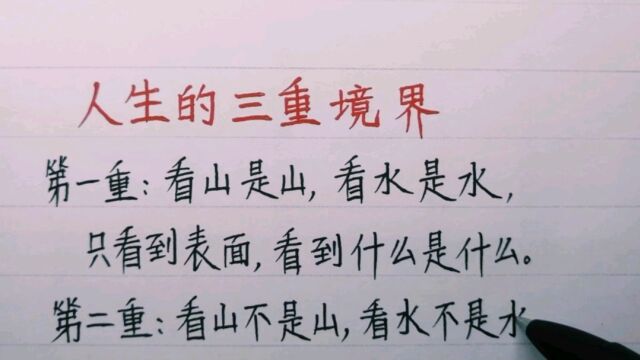 人生的三重境界
第一重：看山是山，看水是水，
只看到表面，看到什么是什么。
第二重：看山不是山，看水不是水